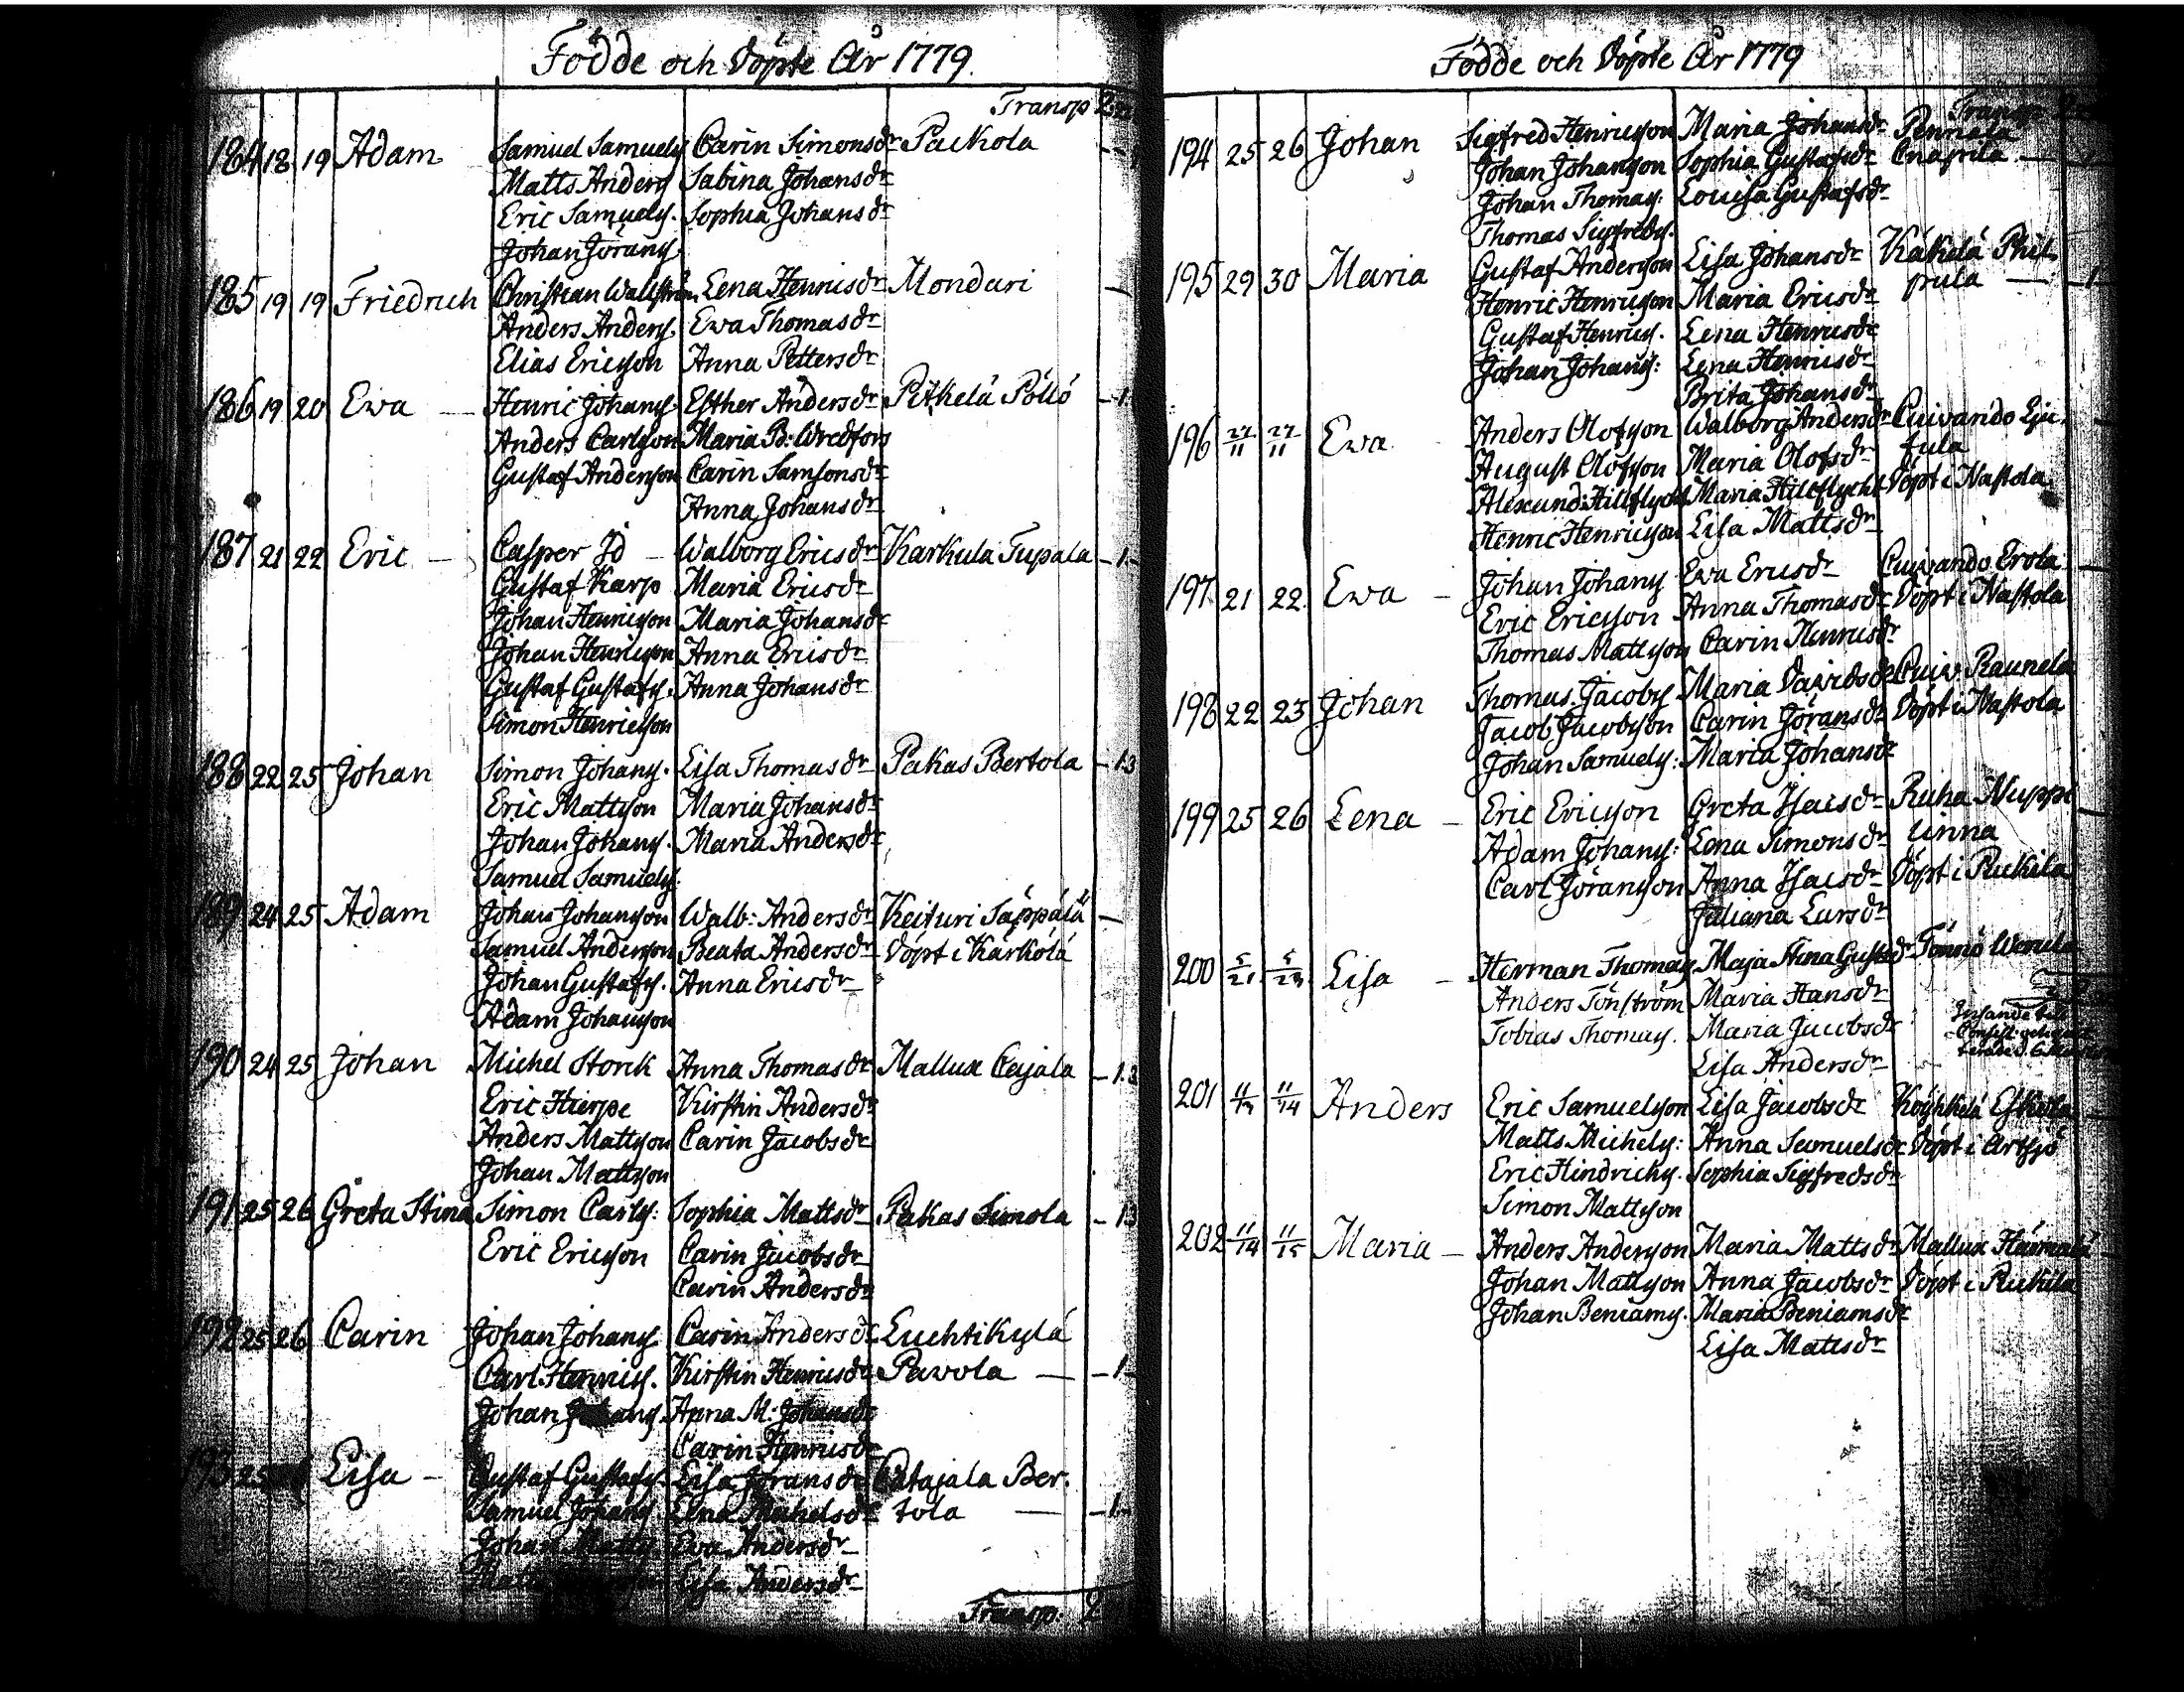 Födde och Döpte År 1779.
Transp
184 18 19 Adam Samuel Samuels Carin Simonsdr Packola
Matts Anders Sabina Johansdr
Eric Samuels. Sophia Johansdr
Johan Jörans
185 19 19 Friedrich Christian Wallström Lena Henricsdr Mondari —
Anders Anders. Ewa Thomasdr
Elias Ericsson Anna Pettersdr
186 19 20 Ewa — Henric Johans. Esther Andersdr Pitkelä Pöllö – 1.
Anders Carlsson Maria B: Wredfors
Gustaf Andersson Carin Samsonsdr
Anna Johansdr
187 21 22 Eric — Casper Id — Walborg Ericsdr Karkula Tupala – 1.
Gustaf Karp Maria Ericsdr
Johan Henricsson Maria Johansdr
Johan Henricsson Anna Ericsdr
Gustaf Gustafs. Anna Johansdr
Simon Henricsson
188 22 25 Johan Simon Johans. Lisa Thomasdr Pakas Bertola – 13
Eric Mattsson Maria Johansdr
Johan Johans. Maria Andersdr
Samuel Samuels.
189 24 25 Adam Johan Johansson Walb: Andersdr Keituri Säppälä —
Samuel Andersson Beata Andersdr Döpt i Kärkölä
Johan Gustafs. Anna Ericsdr
Adam Johansson
190 24 25 Johan Michel Storck Anna Thomasdr Mallux Cajala – 1.3
Eric Hierpe Kirstin Andersdr
Anders Mattsson Carin Jacobsdr
Johan Mattsson
191 25 26 Greta Stina Simon Carls: Sophia Mattsdr Pakas Simola – 13
Eric Ericsson Carin Jacobsdr
Carin Andersdr
192 25 26 Carin Johan Johans Carin Andersdr Luchtikylä
Carl Henrics. Kirstin Henricsdr Pavola — – 1 –
Johan Johans. Anna M: Johansdr
Carin Henricsdr
193 25 Lisa – Gustaf Gustafs. Lisa Jöransdr Catajala Ber.
Samuel Johans Lena Michelsdr tola — – 1 –
Johan Matts. Ewa Andersdr
Lisa Andersdr
Transp. 2
Födde och Döpte År 1779
Transp
194 25 26 Johan Sigfred Henricsson Maria Johansdr Pennala
Johan Johansson Sophia Gustafsdr Cnapila —
Johan Thomas: Lovisa Gustafsdr
Thomas Sigfreds.
195 29 30 Maria Gustaf Andersson Lisa Johansdr Käkelä Phil.
Henric Henricsson Maria Ericsdr pula — 1
Gustaf Henrics. Lena Henricsdr
Johan Johans: Lena Henricsdr
Brita Johansdr
196 27/11 27/11 Ewa Anders Olofsson Walborg Andersdr Cuivando Eju.
August Olofsson Maria Olofsdr fula
Alexand: Hillflycht Maria Hillflycht Döpt i Nastola
Henric Henricsson Lisa Mattsdr
197 21 22 Ewa – Johan Johans Ewa Ericsdr Cuivando Erola
Eric Ericsson Anna Thomasdr Döpt i Nastola
Thomas Mattsson Carin Henricsdr
198 22 23 Johan Thomas Jacobs Maria Davidsdr Cuiv. Raunela
Jacob Jacobsson Carin Jöransdr Döpt i Nastola
Johan Samuels: Maria Johansdr
199 25 26 Lena – Eric Ericsson Greta Isacsdr Ruha Nuppi
Adam Johans: Lena Simonsdr linna
Carl Jöransson Anna Isacsdr Döpt i Rickila
Juliana Larsdr
200 5/21 5/23 Lisa – Herman Thomas Maja Stina Gustafdr Tönnö Wenula
Anders Tönström Maria Hansdr
Tobias Thomas. Maria Jacobsdr
Lisa Andersdr
201 11/13 11/14 Anders Eric Samuelsson Lisa Jacobsdr Köyhkelä Eskola
Matts Michels: Anna Samuelsdr Döpt i Artsjö
Eric Hindrichs. Sophia Sigfredsdr
Simon Mattsson
202 11/14 11/15 Maria – Anders Andersson Maria Mattsdr Mallux Härmälä
Johan Mattsson Anna Jacobsdr Döpt i Rickila
Johan Beniams. Maria Beniamsdr
Lisa Mattsdr